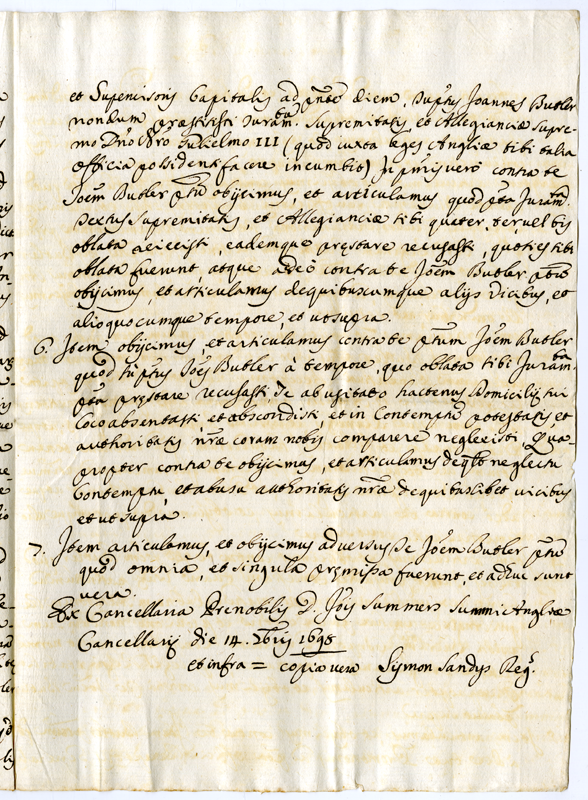 et Supervisoris Capitalis ad pñtẽ diem, supt̃us Joannes Butler
nondum præstitisti Juram.ta Supremitatis, et Allegianciæ supre-
mo Dño Ñro Gulielmo III (quod iuxta leges Angliæ tibi talia
officia possidenti facere incumbit) In primis vero contra te
Joẽm Butler ptũ obijcimus, et articulamus quod pta Juram.ta
Sextus Supremitatis, et Allegianciæ tibi quater, ter vel bis
oblata reiecisti, eademque præstare recusasti, quoties tibi
oblata fuerunt, atque adeo contra te Joẽm Butler ptũ
obijcimus, et articulamus de quibuscumque alijs vicibus, et
alio quocumque tempore et ut supra.
6. Item obijcimus, et articulamus contra te ptum Joẽm Butler
quod tu ptus Joẽs Butler à tempore, quo oblata tibi Juram.ta
pta præstare recusasti, de ab usitato hactenus Domicilij tui
Loco absentasti, et abscondisti, et in Contemptũ potestatis et
authoritatis nræ coram nobis comparere neglexisti. Qua
propter contra te obijcimus, et articulamus de neglectu
Contemptu, et abusu authoritatis nræ de quibuslibet vicibus
et ut supra.
7. Item articulamus, et obijcimus adversus te Joẽm Butler ptũ
quod omnia, et singula præmissa fuerunt, et adhuc sunt
vera.
Ex Cancellaria Prenobilis D. Jois Summers Summi Angliæ
Cancellarij die 14. Xbris 1698
et infra = copia vera Symon Sandys Reg.s